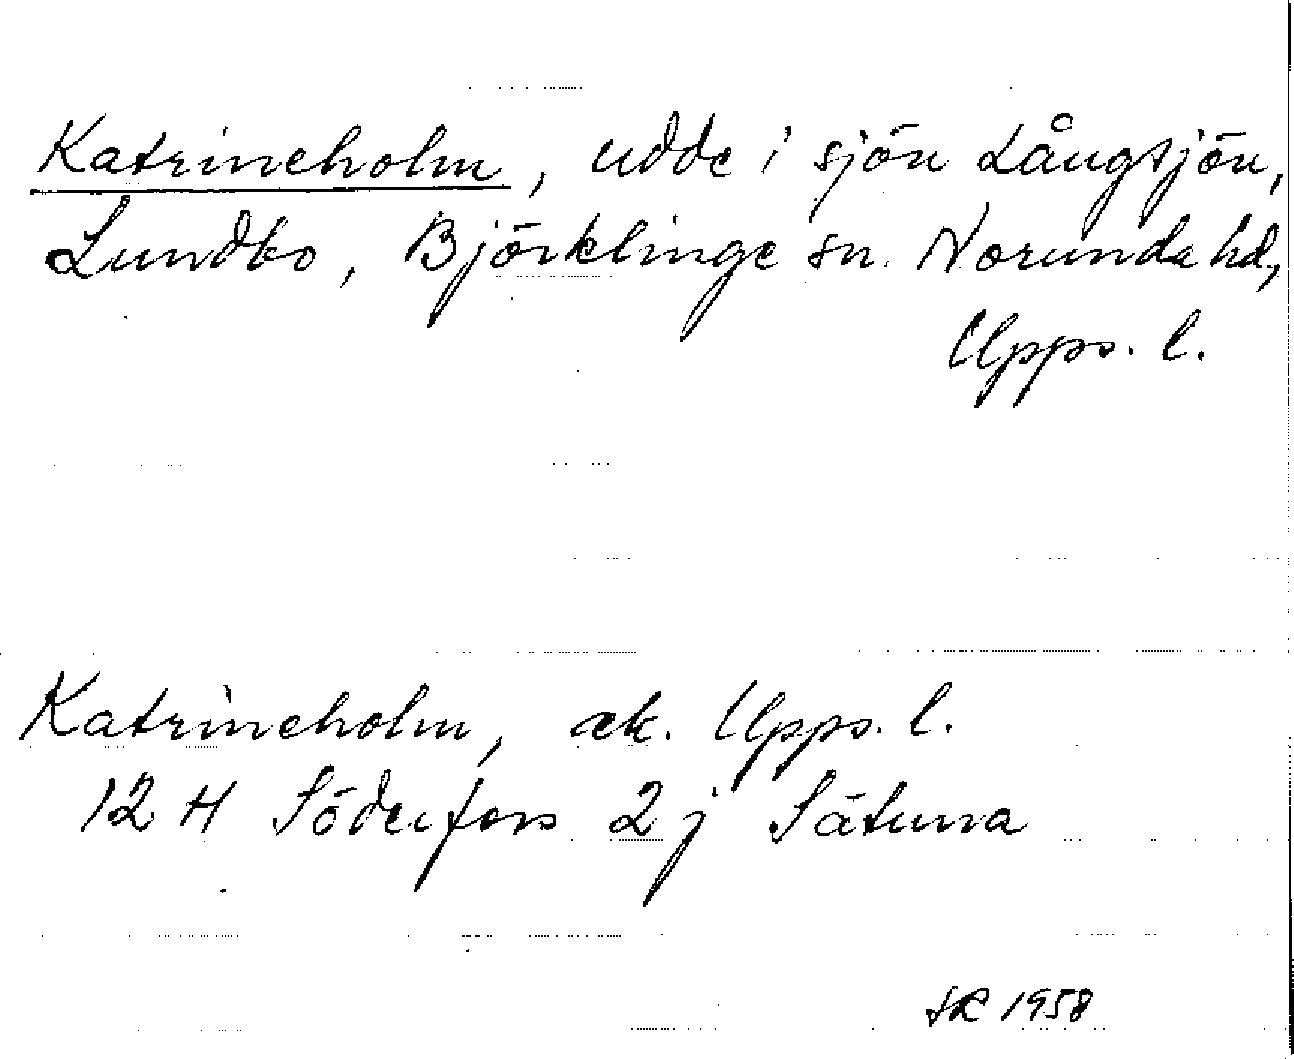 Katrineholm, udde i sjön Långsjön,
Lundbo, Björklinge sn. Norunda hd,
Upps. l.
Katrineholm, ek. Upps. l.
12 H Söderfors 2 j Sätuna
SR 1958